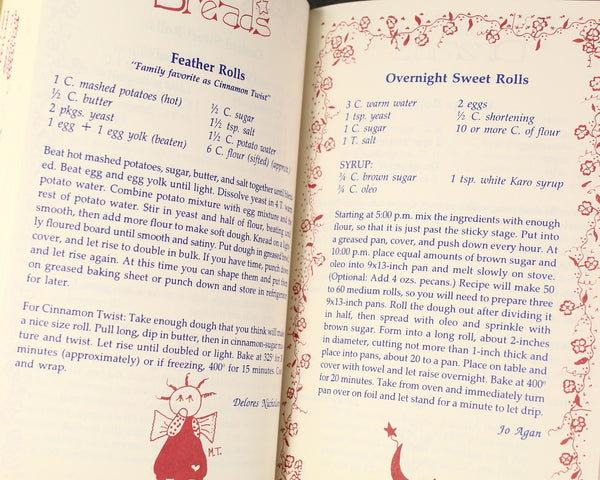 Breads
Feather Rolls
"Family favorite as Cinnamon Twist"
1 C. mashed potatoes (hot)
½ C. butter
2 pkgs. yeast
1 egg + 1 egg yolk (beaten)
½ C. sugar
1½ tsp. salt
1½ C. potato water
6 C. flour (sifted) (approx.)
Beat hot mashed potatoes, sugar, butter, and salt together until
ed. Beat egg and egg yolk until light. Dissolve yeast in 4 T.
potato water. Combine potato mixture with egg mixture and the
rest of potato water. Stir in yeast and half of flour, beating until
smooth, then add more flour to make soft dough. Knead on a light-
ly floured board until smooth and satiny. Put dough in greased bowl,
cover, and let rise to double in bulk. If you have time, punch down
and let rise again. At this time you can shape them and put them
on greased baking sheet or punch down and store in refrigerator
for later.
For Cinnamon Twist: Take enough dough that you think will make
a nice size roll. Pull long, dip in butter, then in cinnamon-sugar mix-
ture and twist. Let rise until doubled or light. Bake at 325° for
minutes (approximately) or if freezing, 400° for 15 minutes.
and wrap.
Delores
M.T.
Overnight Sweet Rolls
3 C. warm water
1 tsp. yeast
1 C. sugar
1 T. salt
2 eggs
½ C. shortening
10 or more C. of flour
SYRUP:
¾ C. brown sugar
¾ C. oleo
1 tsp. white Karo syrup
Starting at 5:00 p.m. mix the ingredients with enough
flour, so that it is just past the sticky stage. Put into
a greased pan, cover, and push down every hour. At
10:00 p.m. place equal amounts of brown sugar and
oleo into 9x13-inch pan and melt slowly on stove.
(Optional: Add 4 ozs. pecans.) Recipe will make 50
to 60 medium rolls, so you will need to prepare three
9x13-inch pans. Roll the dough out after dividing it
in half, then spread with oleo and sprinkle with
brown sugar. Form into a long roll, about 2-inches
in diameter, cutting not more than 1-inch thick and
place into pans, about 20 to a pan. Place on table and
cover with towel and let raise overnight. Bake at 400°
for 20 minutes. Take from oven and immediately turn
pan over on foil and let stand for a minute to let drip.
Jo Agan